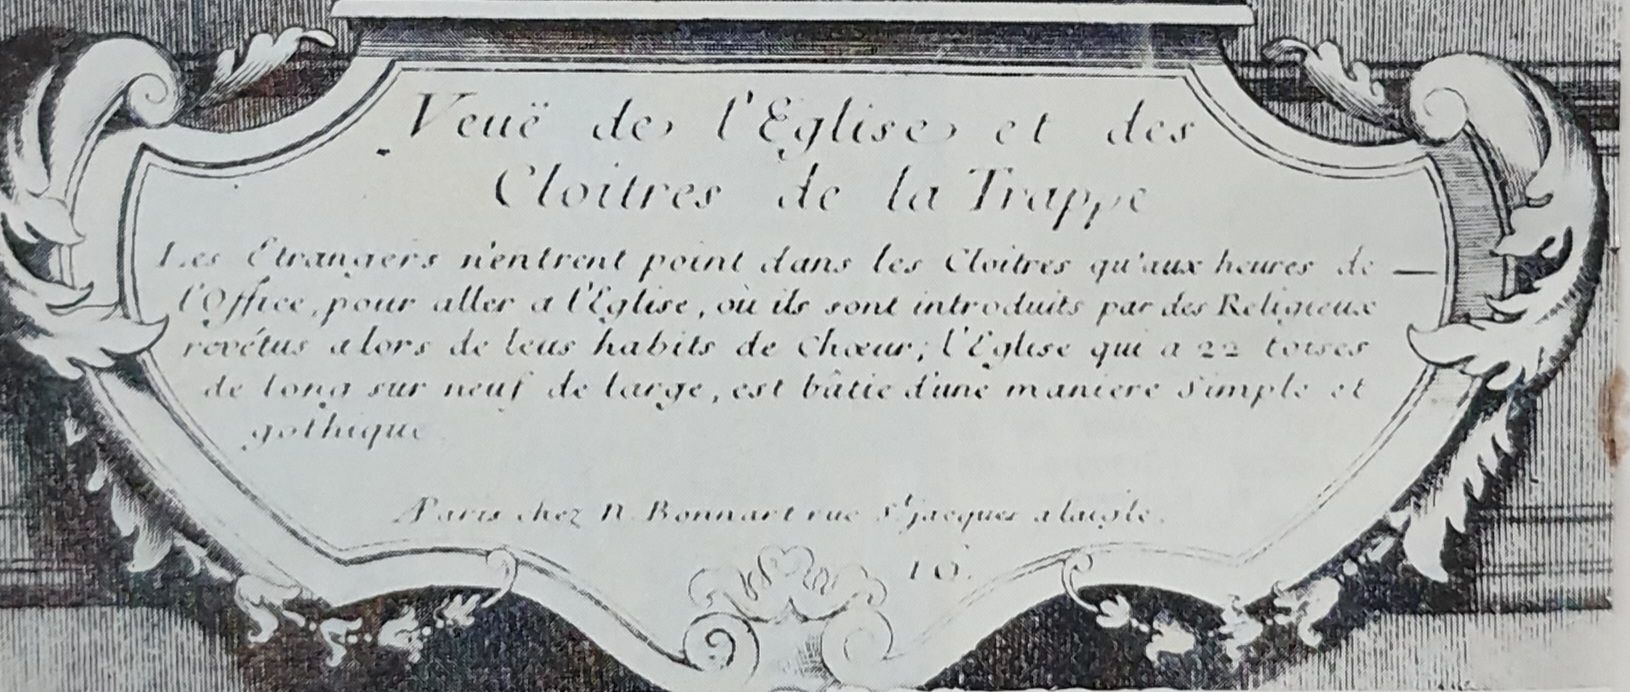 Veuë de l'Eglise et des
Cloitres de la Trappe
Les Etrangers n'entrent point dans les Cloitres qu'aux heures de —
l'Office, pour aller a l'Eglise, où ils sont introduits par des Religieux
revétus alors de leus habits de Chœur; l'Eglise qui a 22 toises
de long sur neuf de large, est bâtie d'une maniere simple et
gothique
A Paris chez N. Bonnart rue St. jacques a laigle.
10.